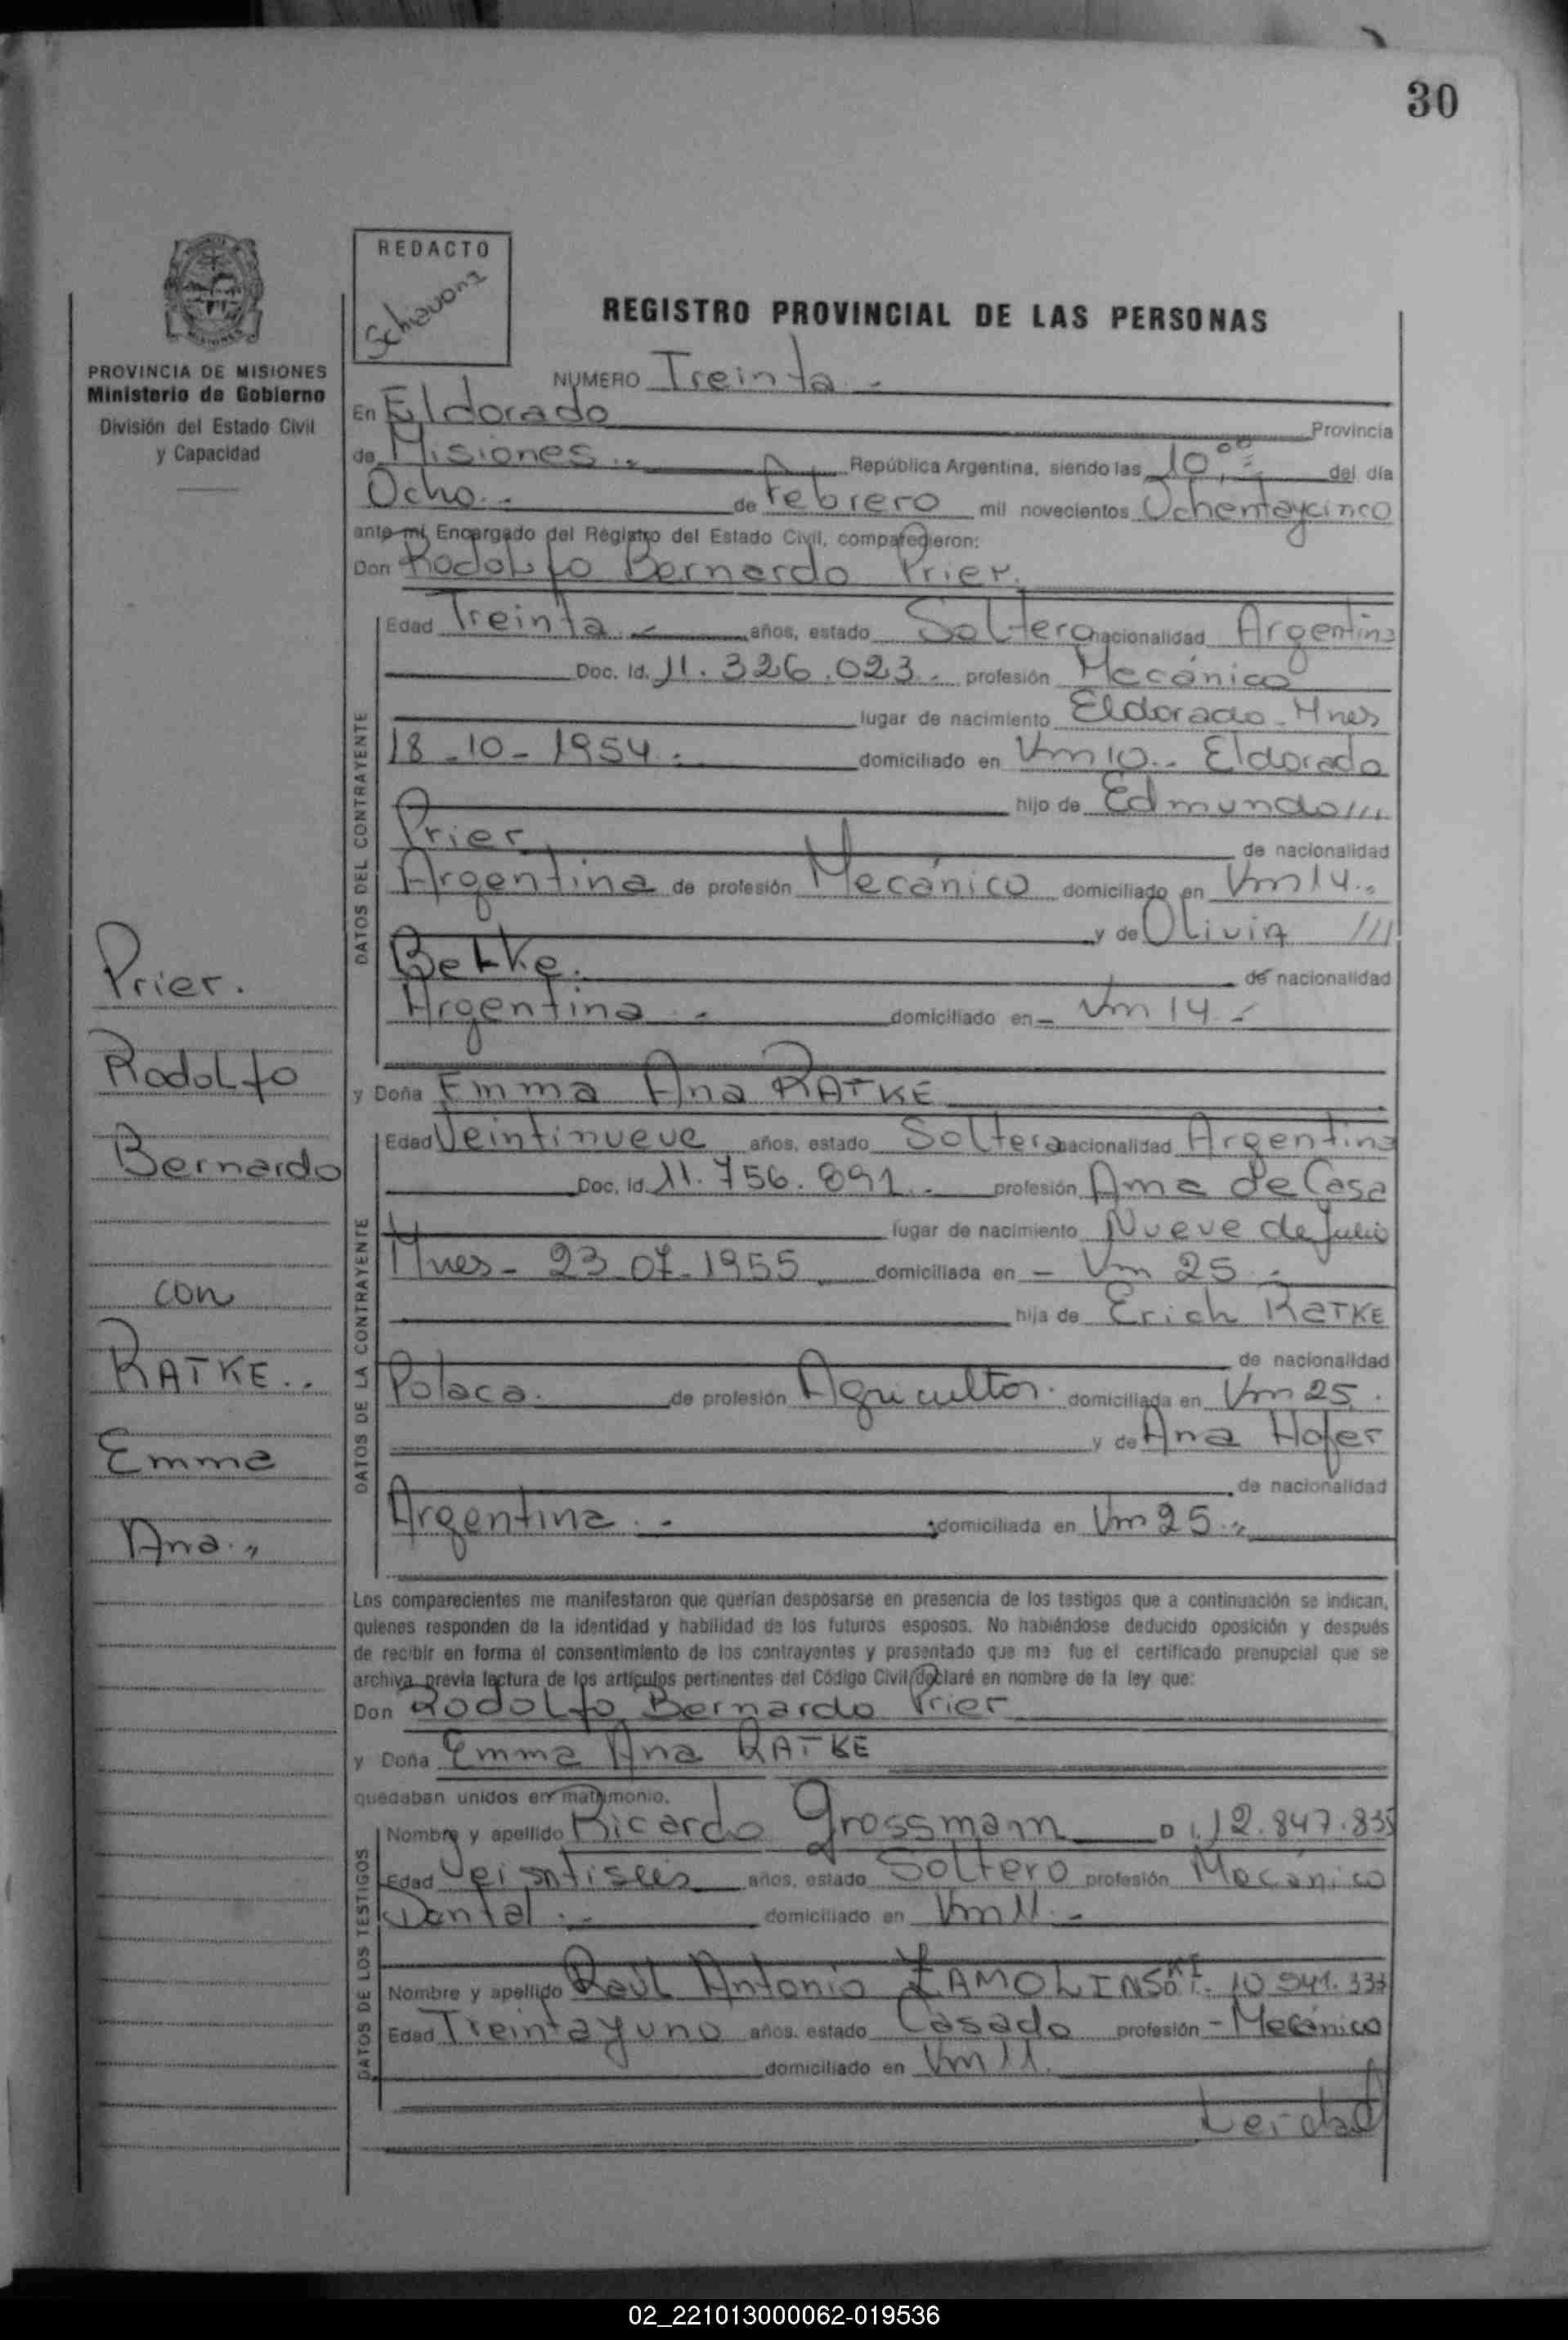 30
REDACTO
Schiavoni
REGISTRO PROVINCIAL DE LAS PERSONAS
PROVINCIA DE MISIONES
Ministerio de Gobierno
División del Estado Civil
y Capacidad
NUMERO Treinta.-
En Eldorado Provincia
de Misiones.- República Argentina, siendo las 10,00 del día
Ocho.- de Febrero mil novecientos Ochentaycinco
ante mí, Encargado del Registro del Estado Civil, comparecieron:
Don Rodolfo Bernardo Prier.
DATOS DEL CONTRAYENTE
Edad Treinta.- años, estado Soltero nacionalidad Argentina
Doc. Id. 11.326.023.- profesión Mecánico
lugar de nacimiento Eldorado-Mnes
18-10-1954.- domiciliado en Km 10.- Eldorado
hijo de Edmundo///
Prier de nacionalidad
Argentina de profesión Mecánico domiciliado en Km 14.-
y de Olivia ///
Betke. de nacionalidad
Argentina.- domiciliado en - Km 14.-
y Doña Emma Ana RATKE
DATOS DE LA CONTRAYENTE
Edad Veintinueve años, estado Soltera nacionalidad Argentina
Doc. Id. 11.756.891.- profesión Ama de Casa
lugar de nacimiento Nueve de Julio
Mnes- 23-07-1955 domiciliada en - Km 25.-
hija de Erich RATKE
de nacionalidad
Polaca. de profesión Agricultor. domiciliada en Km 25.
y de Ana Hofer
de nacionalidad
Argentina.- domiciliada en Km 25.-
Los comparecientes me manifestaron que querían desposarse en presencia de los testigos que a continuación se indican,
quienes responden de la identidad y habilidad de los futuros esposos. No habiéndose deducido oposición y después
de recibir en forma el consentimiento de los contrayentes y presentado que me fue el certificado prenupcial que se
archiva previa lectura de los artículos pertinentes del Código Civil, declaré en nombre de la ley que:
Don Rodolfo Bernardo Prier
y Doña Emma Ana RATKE
quedaban unidos en matrimonio.
DATOS DE LOS TESTIGOS
Nombre y apellido Ricardo Grossmann D I. 12.847.835
Edad Veisntiseis años, estado Soltero profesión Mecánico
Dental.- domiciliado en Km 11.-
Nombre y apellido Raúl Antonio ZAMOLINSKI D I. 10 941.333
Edad Treintayuno años, estado Casado profesión - Mecánico
domiciliado en Km 11.
Prier.
Rodolfo
Bernardo
con
RATKE..
Emma
Ana.,
02_221013000062-019536